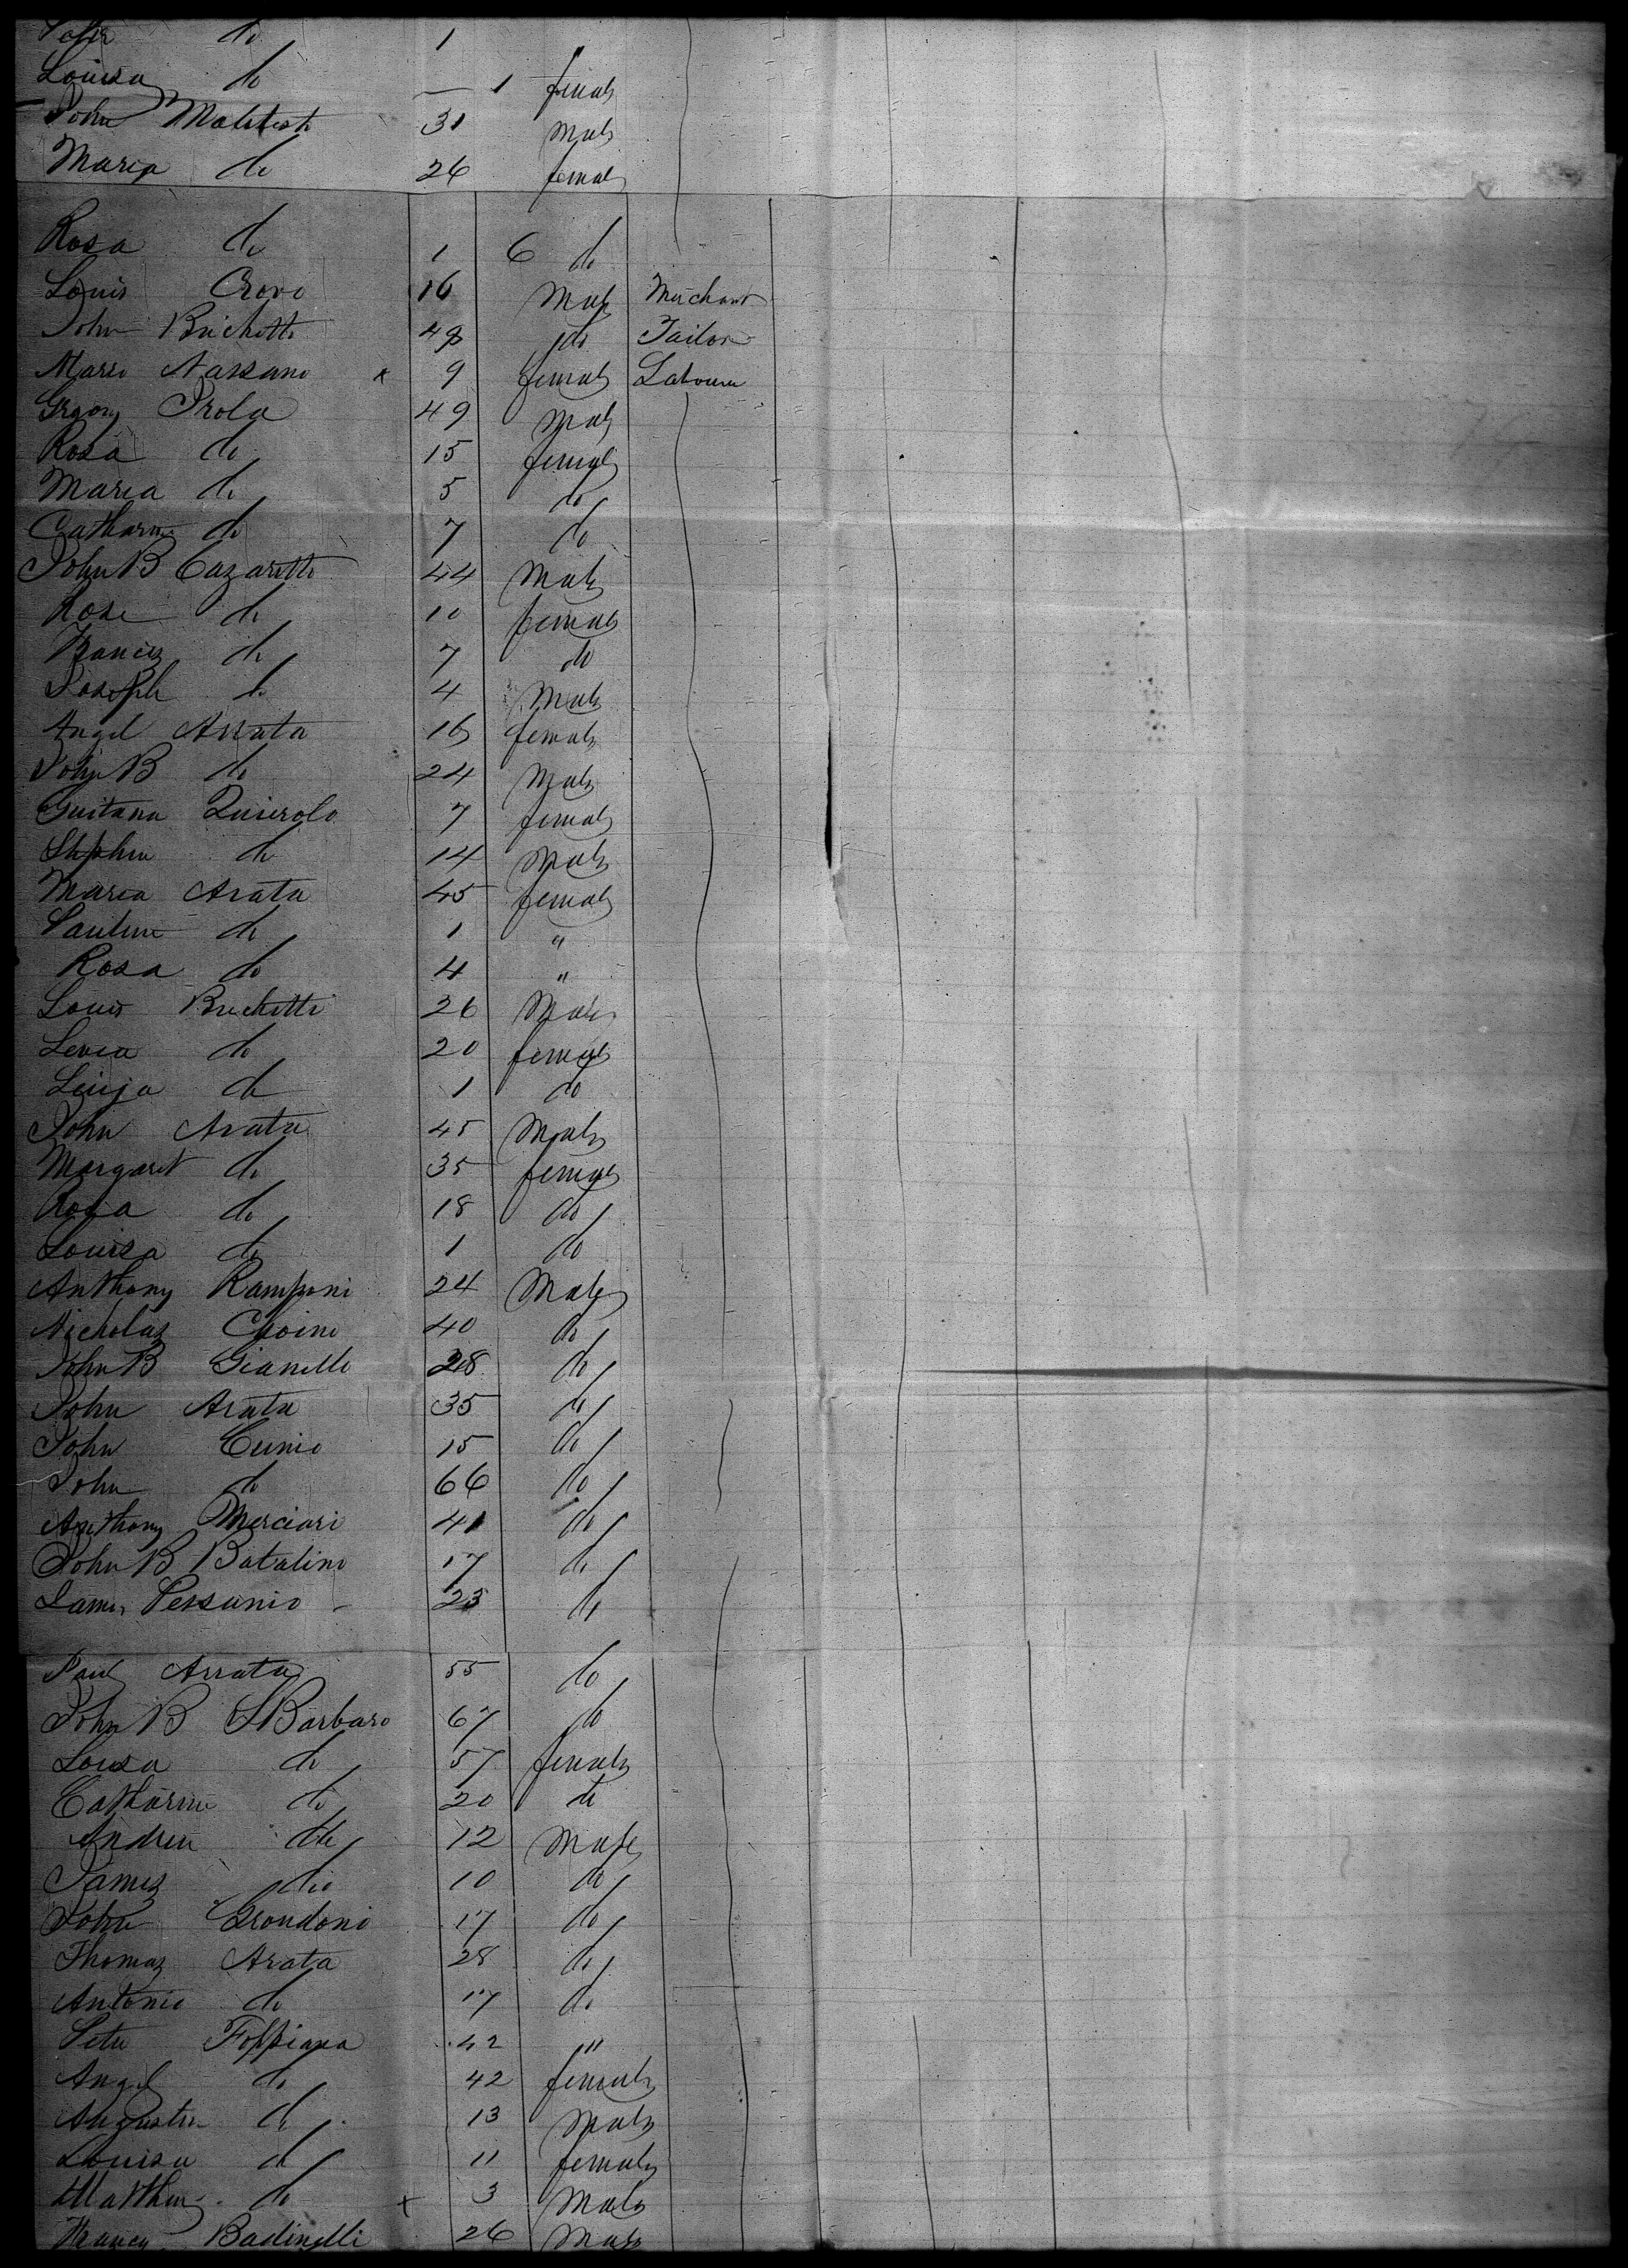 do 1
Louisa do 1 female
John Maletesta 31 Male
Maria do 26 female
Rosa do 1 6 do
Louis Crovo 16 Male Merchant
John Brichetto 48 do Tailor
Marso Narsano x 9 female Labourer
Grgory Prola 49 Male
Rosa do 15 female
Maria do 5 do
Catharine do 7 do
John B Cazaretto 44 Male
Rose do 10 female
Francis do 7 do
Joseph do 4 Male
Angel Arrata 16 female
John B do 24 Male
Guitana Quierolo 7 female
Stephen do 14 Male
Maria Arata 45 female
Pauline do 1 "
Rosa do 4 "
Louis Brichetti 26 Male
Levea do 20 female
Leuja do 1 do
John Arata 45 Male
Margaret do 35 female
Rosa do 18 do
Louisa do 1 do
Anthony Ramponi 24 Male
Nicholas 40 do
John B Gianelli 28 do
John Arata 35 do
John Cunio 15 do
John do 66 do
Anthony Merciari 41 do
John B Batalino 17 do
James Persanio 23 do
Paul Arrata 55 do
John B SBarbaro 67 do
Louisa do 57 female
Catharine do 20 do
Andrew do 12 Male
James do 10 do
John Grondoni 17 do
Thomas Arata 28 do
Antonio do 17 do
Peter Foppiana 42 "
Angel do 42 female
Augustin do 13 Male
Louisa do 11 female
Matthew do x 3 Male
Badinelli 26 Male